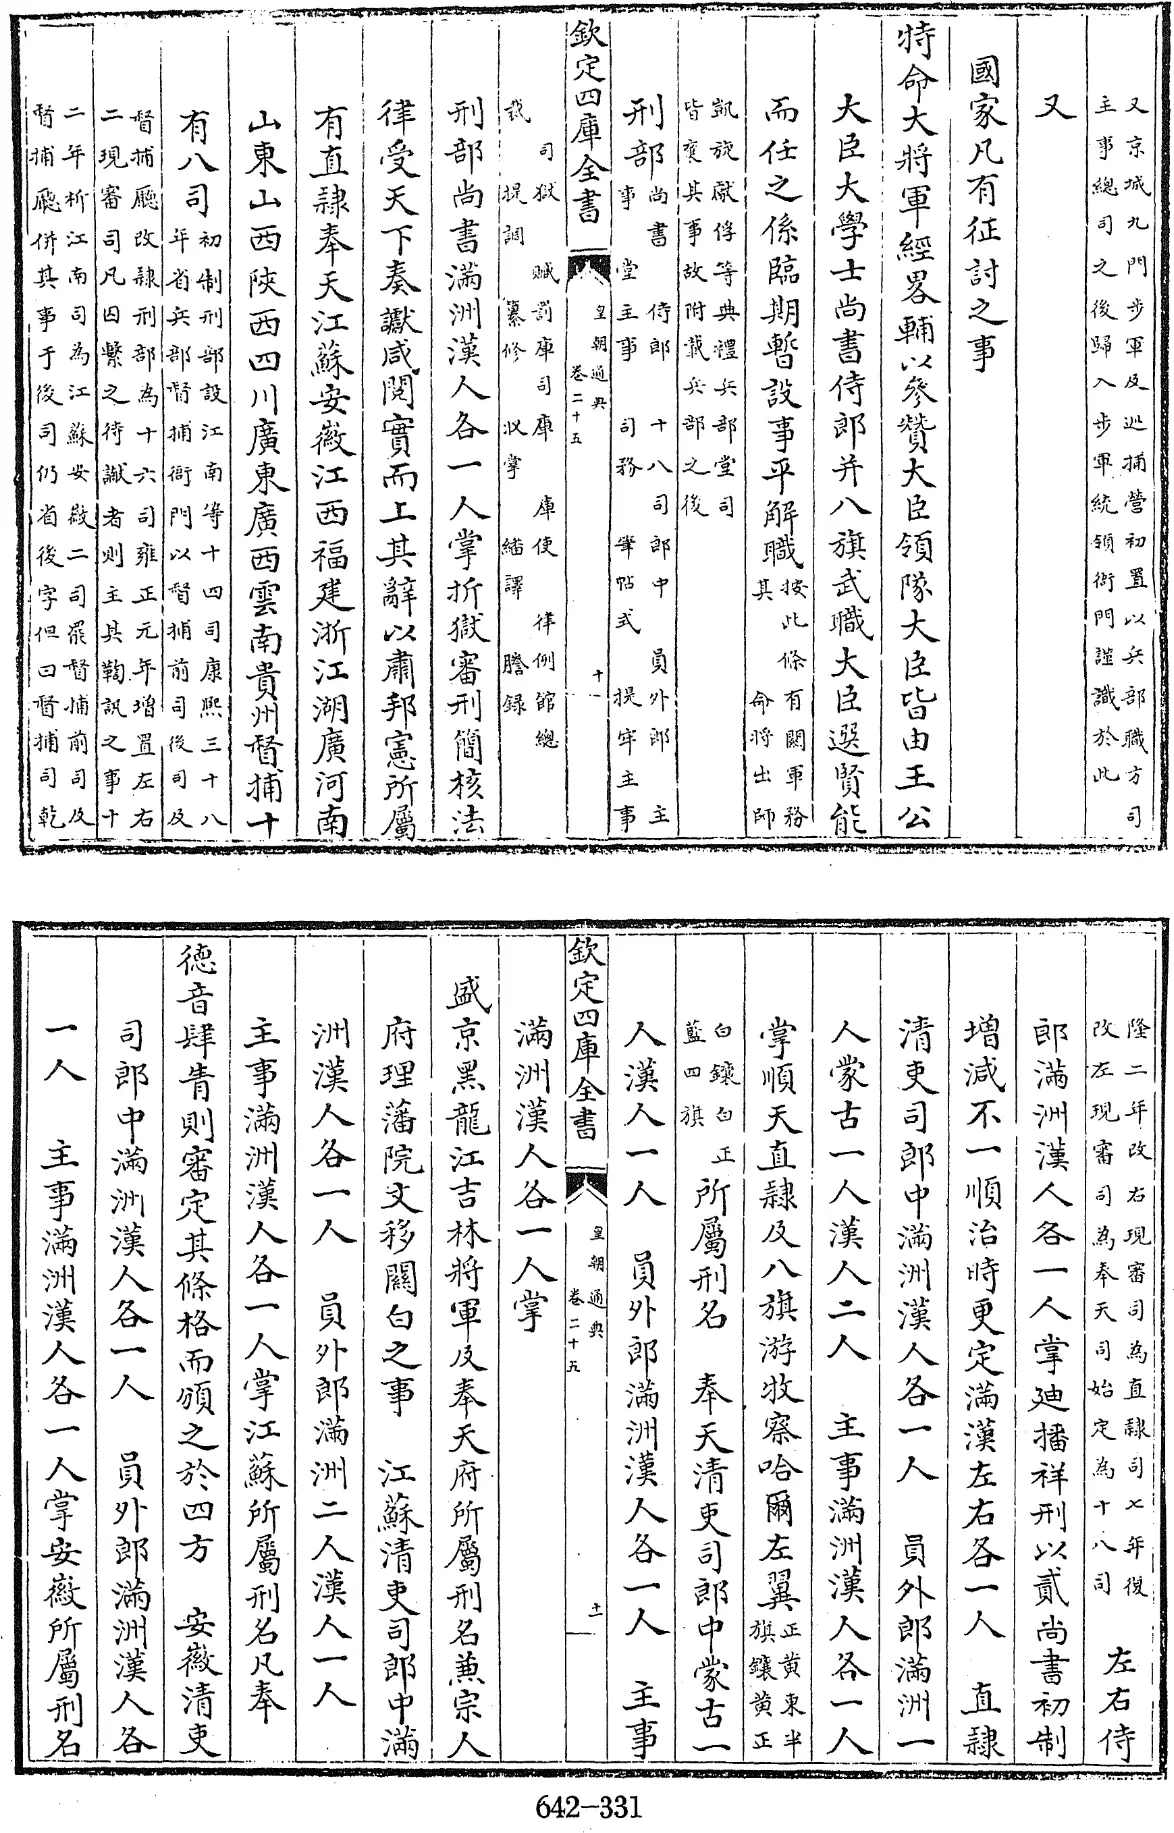 又京城九門步軍及巡捕營初置以兵部職方司
主事總司之後歸入步軍統領衙門謹識於此
又
國家凡有征討之事
特命大將軍經畧輔以參贊大臣領隊大臣皆由王公
大臣大學士尚書侍郎并八旗武職大臣選賢能
而任之係臨期暫設事平解職按此條有關軍務
其命將出師
凱旋獻俘等典禮兵部堂司
皆襄其事故附載兵部之後
刑部尚書侍郎十八司郎中員外郎主
事堂主事司務筆帖式提牢主事
欽定四庫全書
皇朝通典
卷二十五
十一
司獄贓罰庫司庫庫使律例館總
裁提調纂修收掌繙譯謄録
刑部尚書滿洲漢人各一人掌折獄審刑簡核法
律受天下奏讞咸閱實而上其辭以肅邦憲所屬
有直隸奉天江蘇安徽江西福建浙江湖廣河南
山東山西陝西四川廣東廣西雲南貴州督捕十
有八司初制刑部設江南等十四司康熙三十八
年省兵部督捕衙門以督捕前司後司及
督捕廳改隸刑部為十六司雍正元年增置左右
二現審司凡囚繫之待讞者則主其鞫訊之事十
二年析江南司為江蘇安徽二司罷督捕前司及
督捕廳併其事于後司仍省後字但曰督捕司乾
隆二年改右現審司為直隸司七年復
改左現審司為奉天司始定為十八司左右侍
郎滿洲漢人各一人掌廸播祥刑以貳尚書初制
增減不一順治時更定滿漢左右各一人直隸
清吏司郎中滿洲漢人各一人員外郎滿洲一
人蒙古一人漢人二人主事滿洲漢人各一人
掌順天直隸及八旗游牧察哈爾左翼正黃東半
旗鑲黃正
白鑲白正
藍四旗所屬刑名奉天清吏司郎中蒙古一
人漢人一人員外郎滿洲漢人各一人主事
欽定四庫全書
皇朝通典
卷二十五
十一
滿洲漢人各一人掌
盛京黑龍江吉林將軍及奉天府所屬刑名兼宗人
府理藩院文移關白之事江蘇清吏司郎中滿
洲漢人各一人員外郎滿洲二人漢人一人
主事滿洲漢人各一人掌江蘇所屬刑名凡奉
德音肆眚則審定其條格而頒之於四方安徽清吏
司郎中滿洲漢人各一人員外郎滿洲漢人各
一人主事滿洲漢人各一人掌安徽所屬刑名
642-331